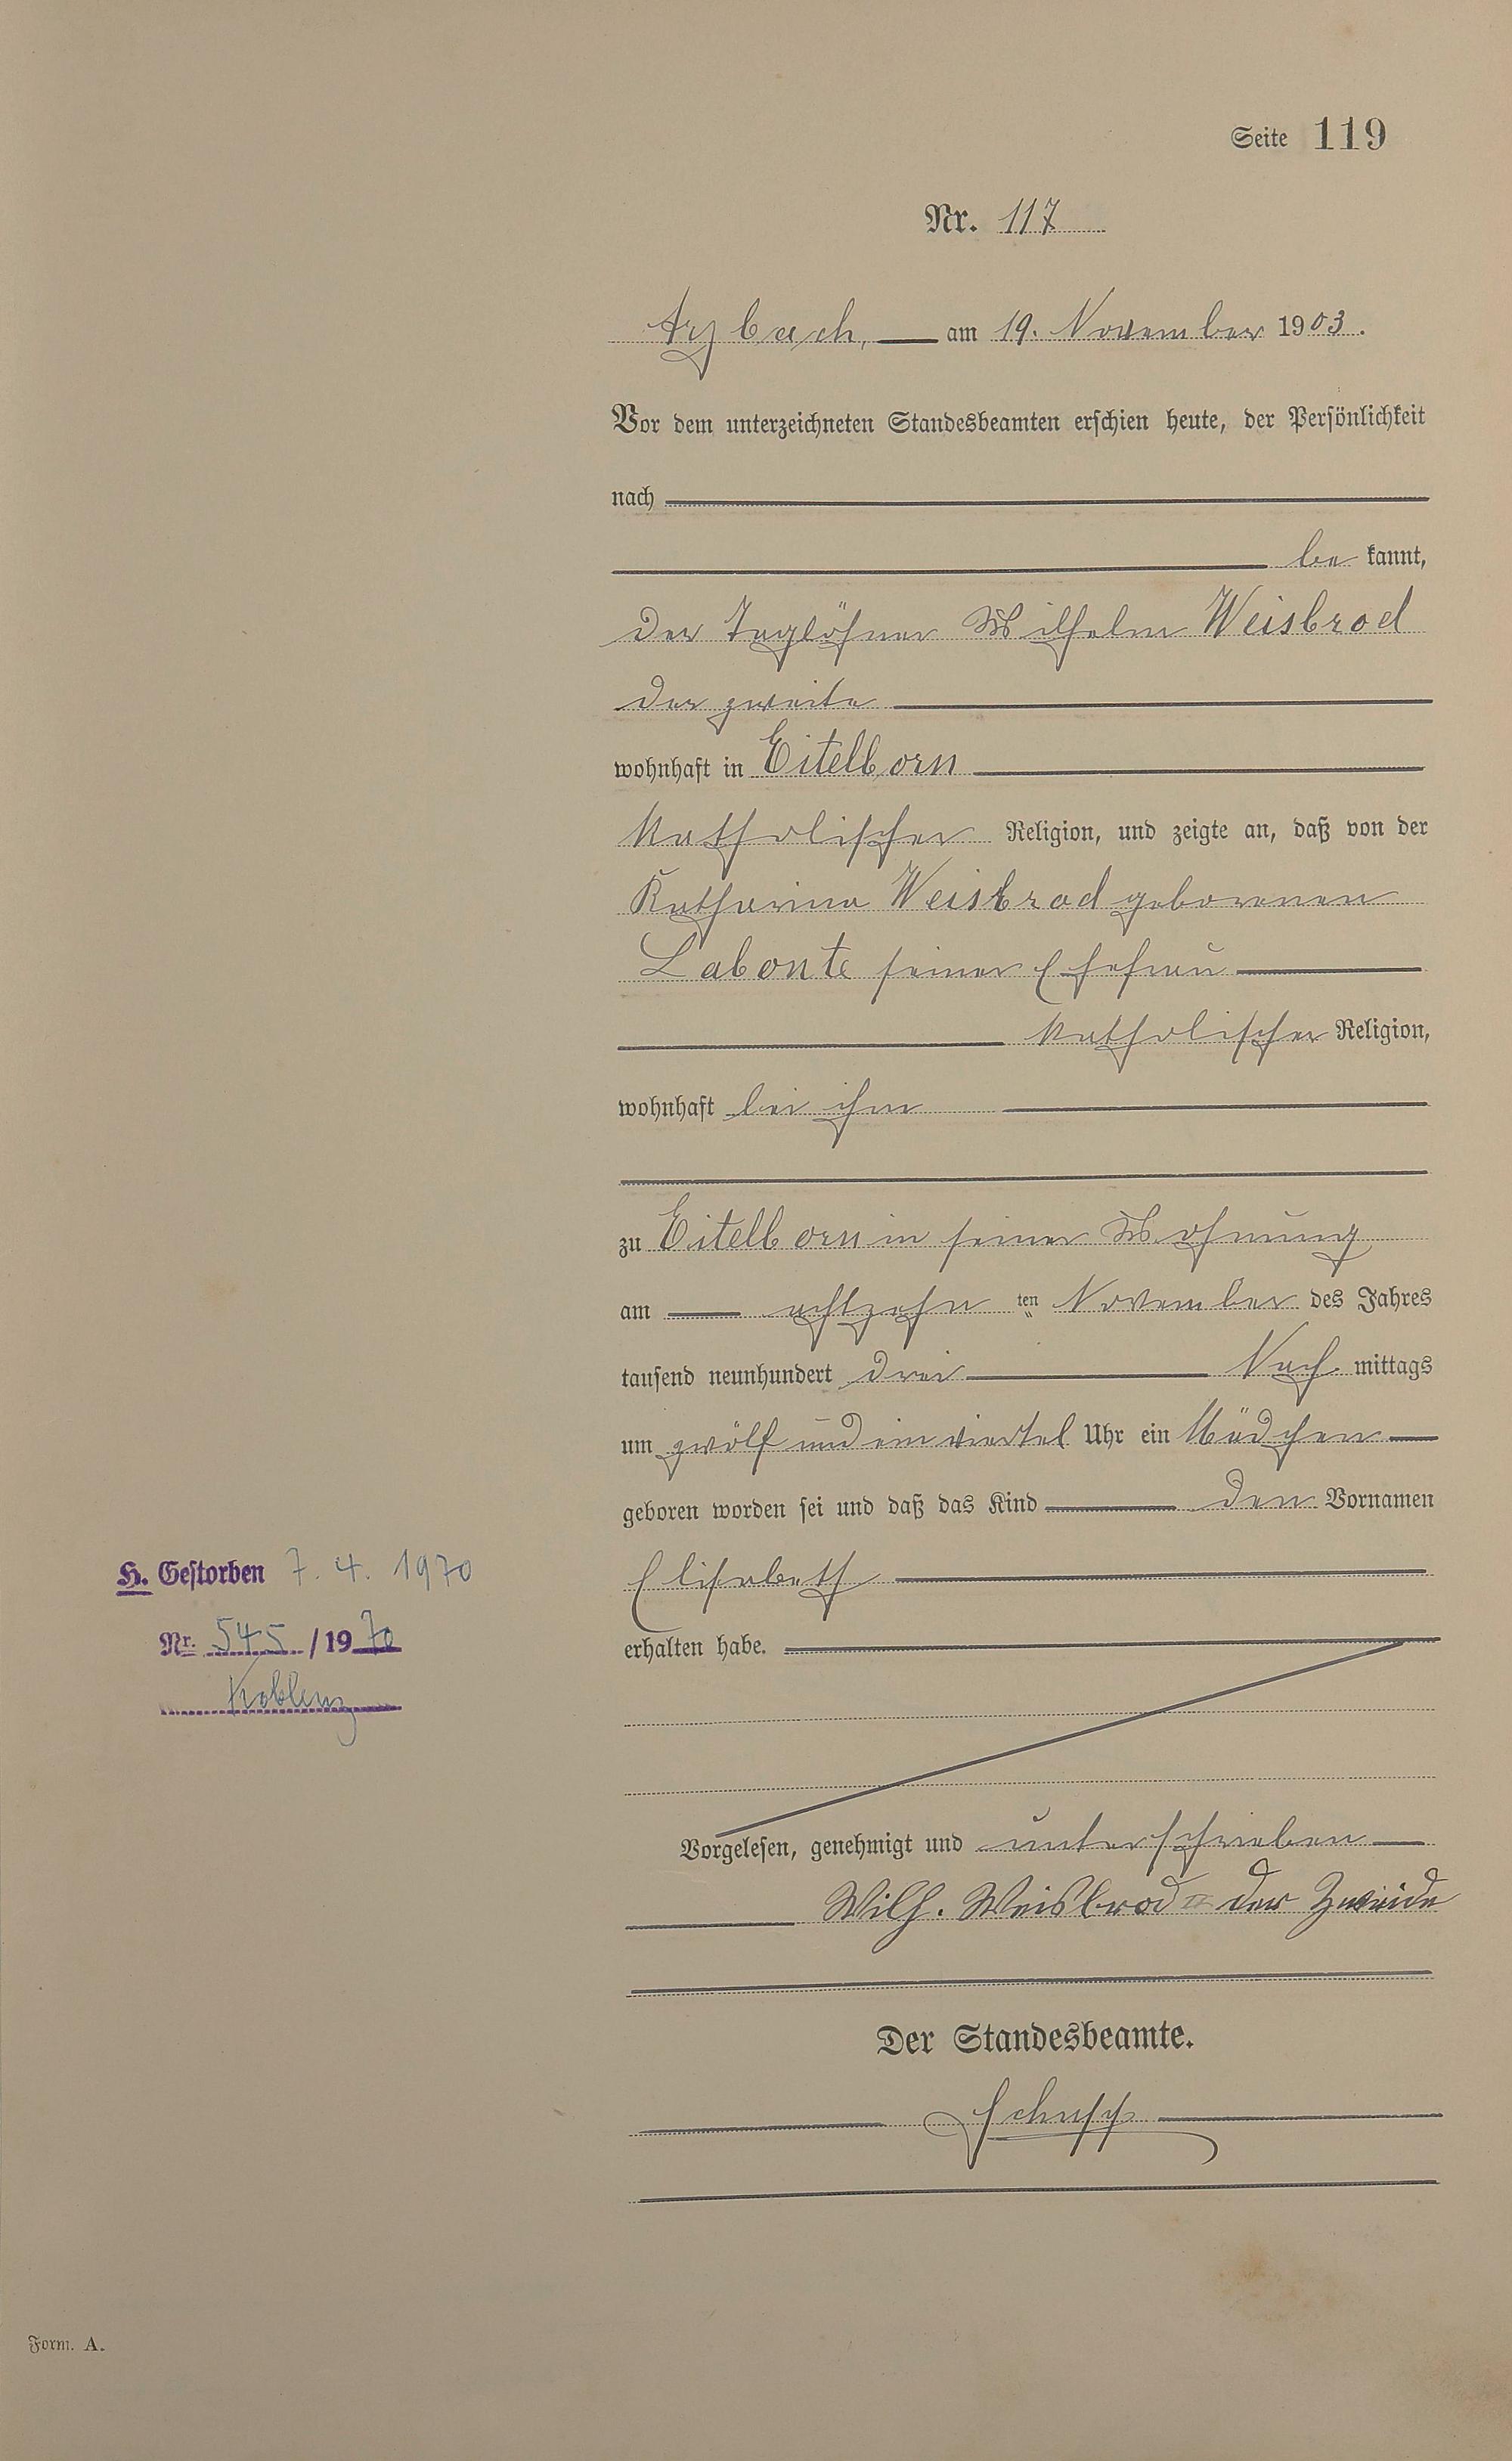 Seite 119
Nr. 117
Arzbach, am 19. November 1903.
Vor dem unterzeichneten Standesbeamten erschien heute, der Persönlichkeit
nach
be kannt,
der Taglöhner Wilhelm Weisbrod
der zweite
wohnhaft in Eitelborn
katholischer Religion, und zeigte an, daß von der
Katharina Weisbrod geborenen
Labonte seiner Ehefrau
katholischer Religion,
wohnhaft bei ihm
zu Eitelborn in seiner Wohnung
am achtzehn ten November des Jahres
tausend neunhundert drei Nach mittags
um zwölf und ein viertel Uhr ein Mädchen
geboren worden sei und daß das Kind den Vornamen
Elisabeth
erhalten habe.
H. Gestorben 7. 4. 1970
Nr. 545 / 1970
Koblenz
Vorgelesen, genehmigt und unterschrieben
Wilh. Weisbrod II der Zweide
Der Standesbeamte.
Schupp
Form. A.